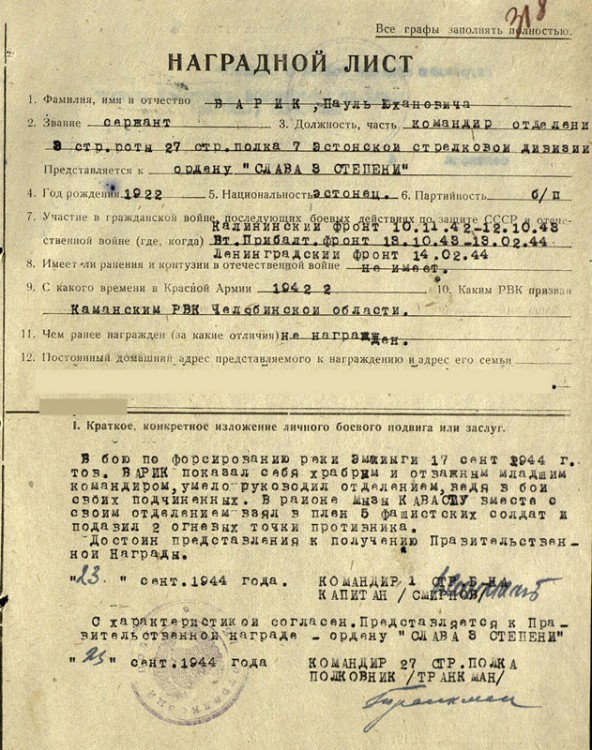 318
Все графы заполнять полностью.
НАГРАДНОЙ ЛИСТ
1. Фамилия, имя и отчество ВАРИК, Пауль Юханович
2. Звание сержант 3. Должность, часть командир отделени
3 стр.роты 27 стр.полка 7 Эстонской стрелковой дивизии
Представляется к ордену "СЛАВА 3 СТЕПЕНИ"
4. Год рождения 1922 5. Национальность эстонец. 6. Партийность б/п
7. Участие в гражданской войне, последующих боевых действиях по защите СССР и отече-
Калининский фронт 10.11.42-12.10.43
ственной войне (где, когда) Вт.Прибалт.фронт 13.10.43-13.02.44
Ленинградский фронт 14.02.44
8. Имеет ли ранения и контузии в отечественной войне не имеет.
9. С какого времени в Красной Армии 1942 2 10. Каким РВК призван
Каманским РВК Челебинской области.
11. Чем ранее награжден (за какие отличия) не награжден.
12. Постоянный домашний адрес представляемого к награждению и адрес его семьи
I. Краткое, конкретное изложение личного боевого подвига или заслуг.
В бою по форсированию реки Эмйыги 17 сент 1944 г.
тов. ВАРИК показал себя храбрим и отважным младшим
командиром, умело руководил отделением, ведя в бои
своих подчиненных. В районе Мызы КАВАСТУ вместе с
своим отделением взял в плен 5 фашистских солдат и
подавил 2 огневых точки противника.
Достоин представления к получению Правительствен-
ной Награды.
"23" сент.1944 года. КОМАНДИР 1 СТР.Б-НА
КАПИТАН /СМИРНОВ/
С характеристикой согласен. Представляется к Пра-
вительственной награде - ордену "СЛАВА 3 СТЕПЕНИ"
"23" сент.1944 года КОМАНДИР 27 СТР.ПОЛКА
ПОЛКОВНИК /ТРАНКМАН/